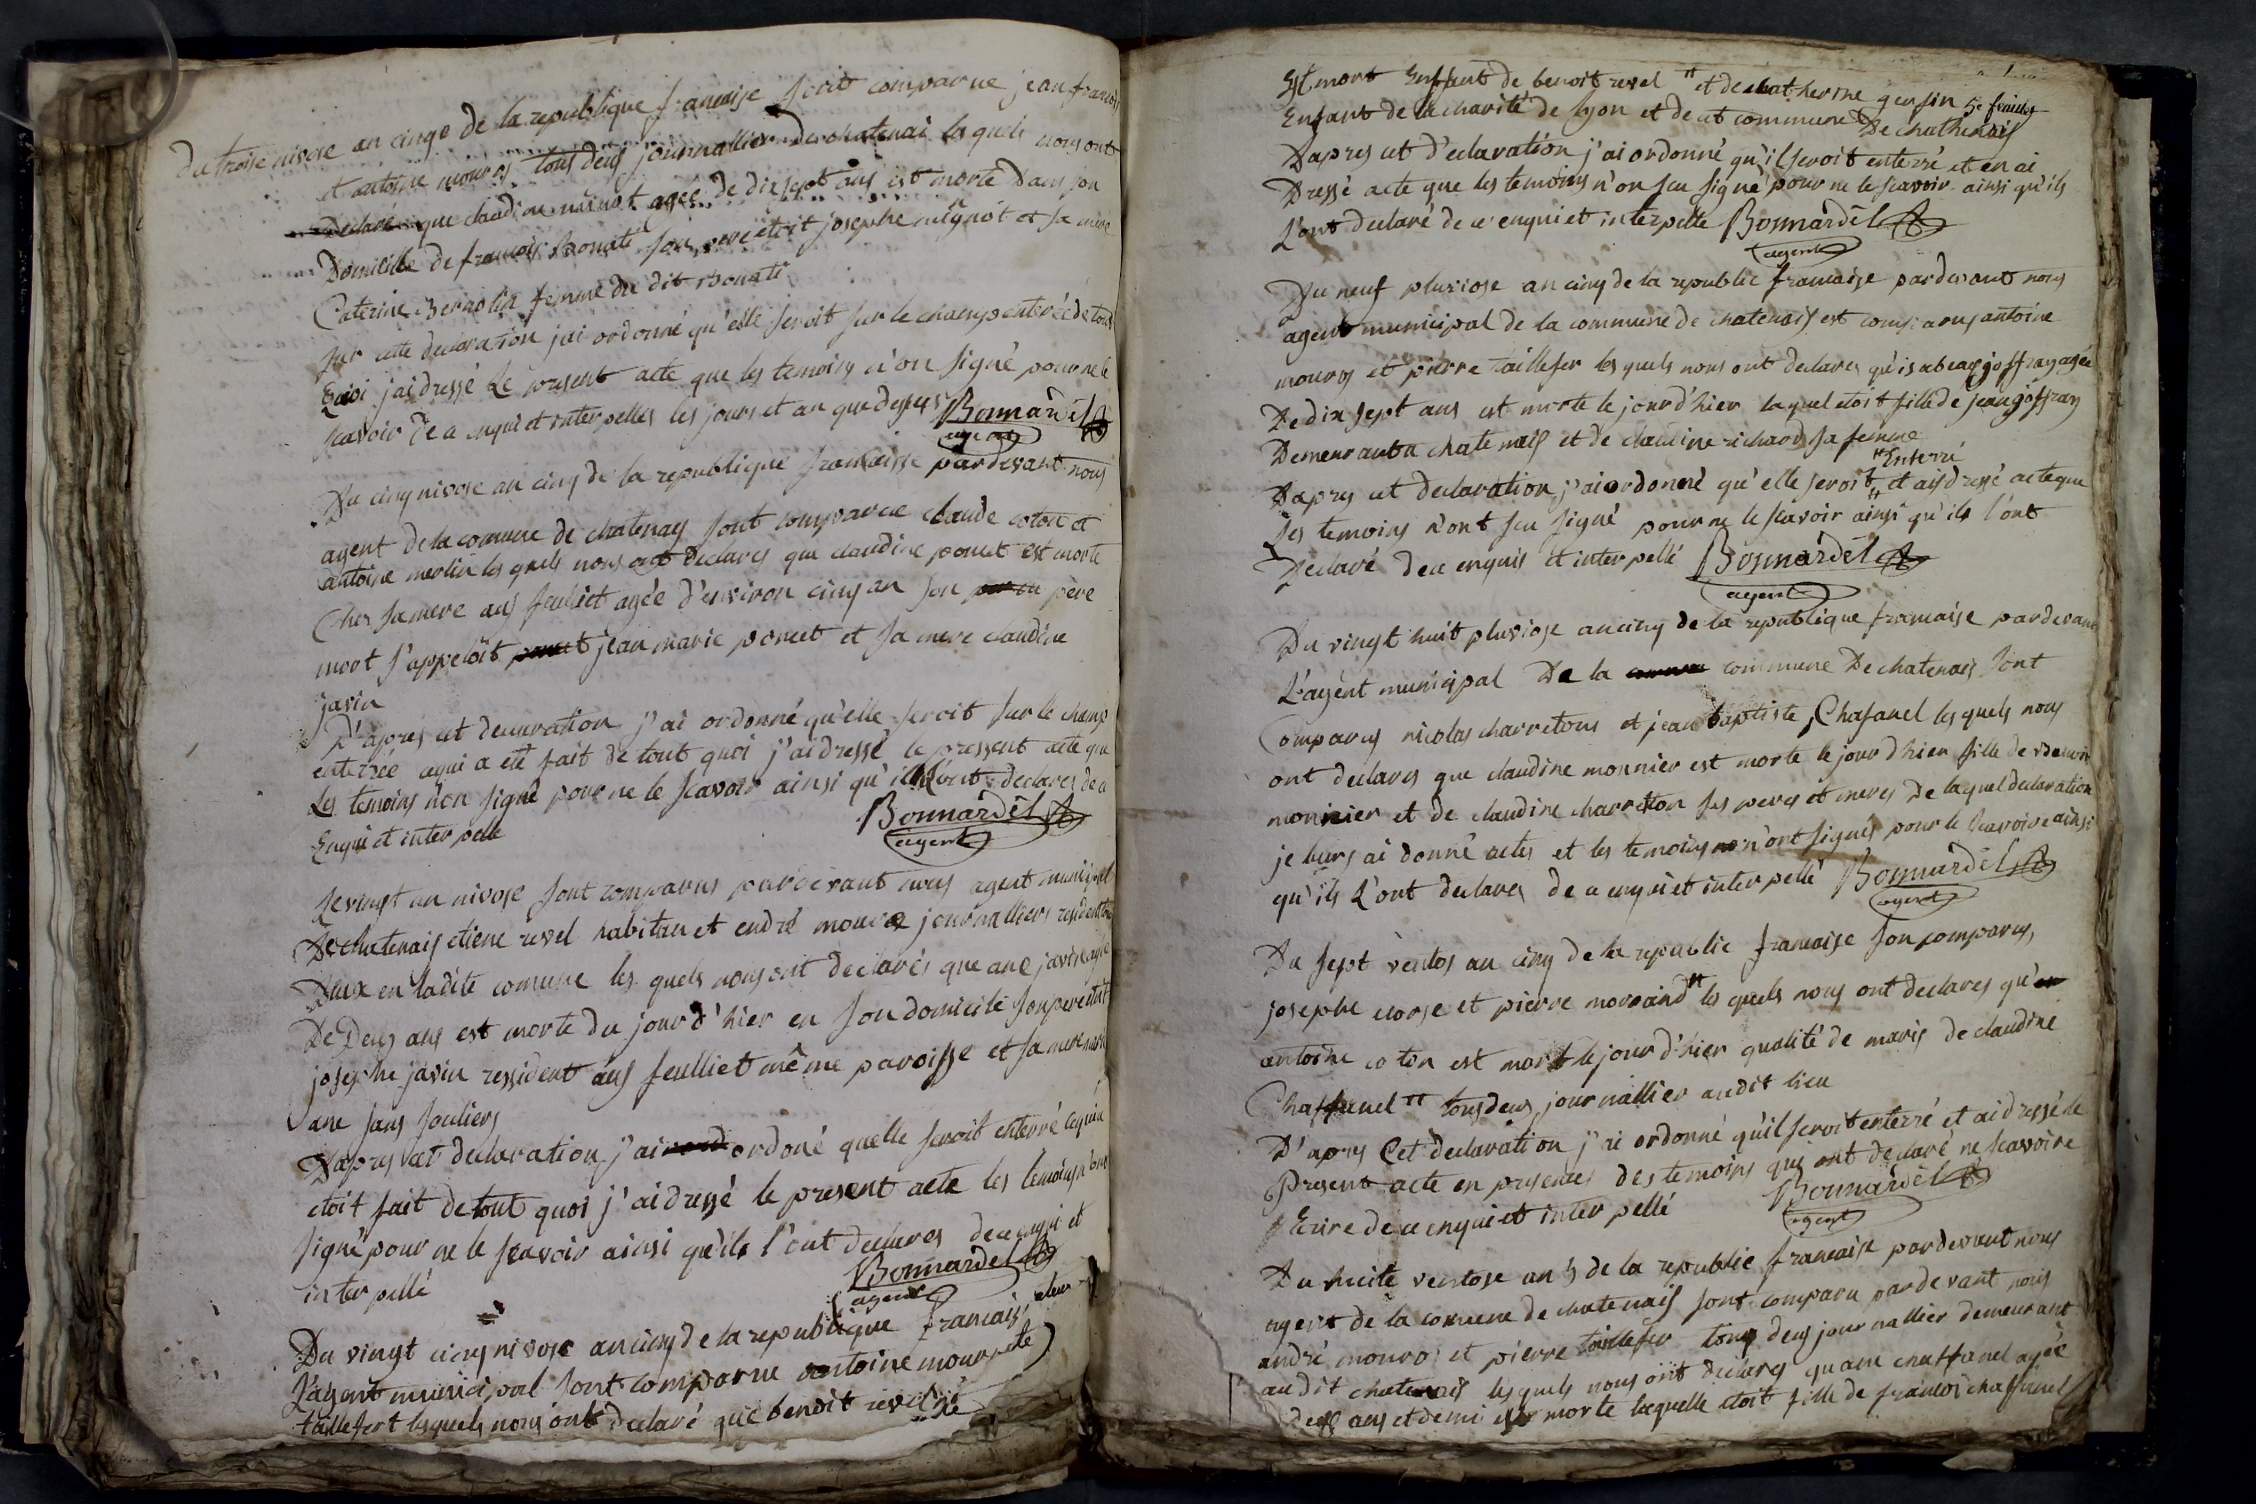 Du troise nivose an cinqe de la republique francaise sont comparue jean francois
et antoine mouros tous deus journallier de chatenai lesquels nous ont
declaré que claudine mignot agee de dix sept ans est morte dans son
Domicille de francois Bonati son pere étoit josephe mignot et sa mere
Caterine Bernolin femme du dit Bonati
sur cette declaration jai ordonné qu'elle seroit sur le champ enterée de tout
quoi jai dressé Le present acte que les temoins n'on signé pour ne le
scavoir de ce enqui et interpelles les jours et an que dessus Bonnardel
agent
Du cinq nivose an cinq de la republique francaisse pardevant nous
agent de la comune de chatenay sont comparue claude coton et
antoine merlin les quels nous ont declares que claudine poncet est morte
Chez sa mere aus feulliet agée d'environ cinq an son père
mort s'appeloit jean marie poncet et sa mere claudine
javin
D'apres cet decuration j'ai ordonné qu'elle seroit sur le champ
enterree cequi a eté fait de tout quoi j'ai dressé le pressent acte que
Les temoins n'on signé pour ne le scavoir ainsi qu'ils L'ont declares de ce
Enqui et interpelle Bonnardel
agent
Le vingt un nivose sont comparus pardevant nous agent municipal
De chatenais etiene revel habitan et endré mouros journalliers residents tous
Deux en ladite comune les quels nous ont declarés que ane javin agée
De Deus ans est morte du jour d'hier en son domicile son pere etoit
josephe javin ressident aus feulliet même paroisse et sa mere marie
ane sans souliers
D'apres cet declaration j'ai ordoné quelle seroit enterré cequi a
etoit fait de tout quoi j'ai dressé le present acte les temoins n'ont
signé pour ne le scavoir ainsi qu'ils l'ont declares de ce enqui et
interpellé Bonnardel
agent
Du vingt cinq nivose an cinq de la republique francais
L'agent municipal sont comparue antoine mouros
taillefert lesquels nous ont declaré que benoit revel
Est mort Enffant de benoit revel et de chatherine gensin
Enfant de la charité de lyon et de cet commune De chathenais
D'apres cet d'eclaration j'ai ordonné qu'il seroit enterré et en ai
Dressé acte que les temoins n'on scu signé pour ne le scavoir ainsi qu'ils
L'ont declaré de ce enqui et interpelle Bonnardel
agent
Du neuf pluviose an cinq de la republic francaise pardevant nous
agent municipal de la commune de chatenais est comparus antoine
mouros et pierre taillefer les quels nous ont declares qu'isabeau joffray agée
De dix sept ans est morte le jour d'hier laquel etoit fille de jean joffray
Demeurant a chatenais et de claudine richard sa femme
D'apres cet declaration j'ai ordonné qu'elle seroit Enterré et ai dressé acte que
Les temoins n'ont scu signé pour ne le scavoir ainsi qu'ils l'ont
Declaré de ce enquis et interpellé Bonnardel
agent
Du vingt huit pluviose an cinq de la republique francaise pardevant
L'agent municipal De la commune De chatenais sont
Comparus nicolas charretons et jean baptiste Chafanel les quels nous
ont declares que claudine monnier est morte le jour d'hier fille de
monnier et de claudine charreton ses peres et meres De laquel declaration
je leurs ai donné actes et les temoins n'ont signés pour le scavoire ainsi
qu'ils L'ont declares de ce enqui et interpellé Bonnardel
agent
Du sept ventos an cinq de la republic francaise son comparus
josephe corse et pierre morrand les quels nous ont declares qu'
antoine coton est mort le jour d'hier qualité de maris de claudine
Chaffanel tous deus journallier audit lieu
D'apres Cet declaration j'ai ordonné qu'il seroit enterré et ai dressé le
Present acte en presences des temoins qui ont declaré ne scavoire
Ecrire de ce enqui et interpellé Bonnardel
agent
Du huite ventose an 5 de la republic francaise pardevant nous
agent de la comune de chatenais sont comparu pardevant nous
andré mouros et pierre taillefer tous deus journallier demeurant
au dit chatenais lesquels nous ont declares qu ane chaffanel agée
deux ans et demi est morte laquelle etoit fille de francois chaffanel